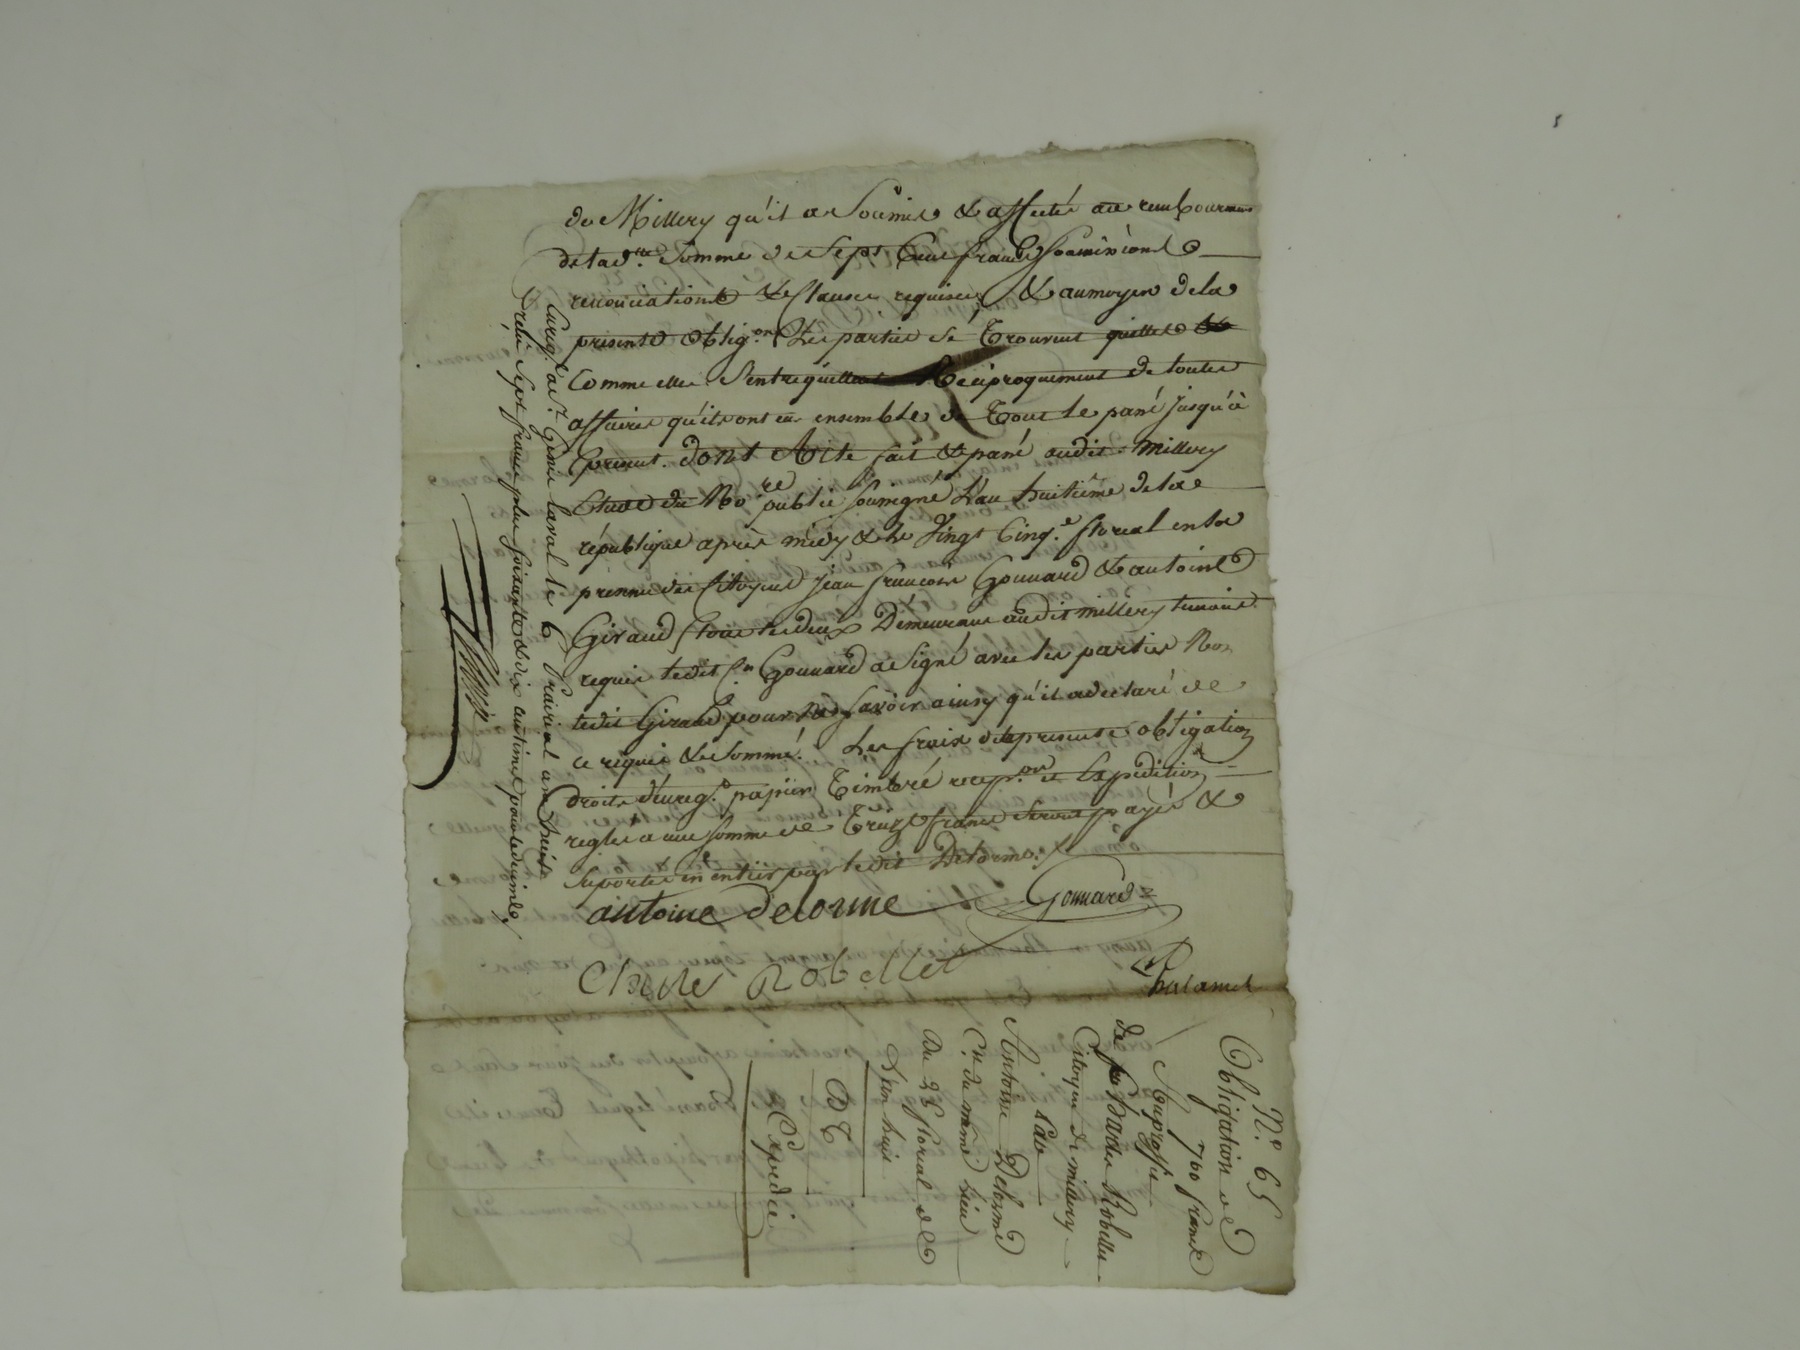 de Millery qu'il a Soumis & affectés au rembourmens
de lad.tte Somme de Sept Cent francs Soumissions
renonciations & Clauses requises, & au moyen de la
presente oblig.on Les parties se Trouvent quittes &
comme elles S'entrequittent Réciproquement de toutes
affaires qu'ils ont eu ensemble de Tout le passé jusqu'à
present. dont Acte fait & passé audit Millery
Etude du No.re public soussigné L'an huitième de la
république après midy & le Vingt Cinq.e floreal en la
présence des Citoyens Jean françois Gonnard & antoine
Giraud Tous les deux Demeurans audit millery temoins
requis ledit C.n Gonnard a Signé avec les parties Non
ledit Giraud pour ne Savoir ainsy qu'il a declaré de
ce requis & Sommé. Les frais de la presente obligation
droits d'enreg.t papier Timbré recep.on et Expédition
reglés a une somme de Treize francs Seront payés &
Suportés en entier par ledit Delorme.
antoine delorme Gonnard
Claude Robellet
Enreg.é a S.t Genis laval le 6 Prairial an huit
reçu Sept francs plus soixante & dix centimes pour le decime
N.o 65
Obligation de
700 francs
Au proffit
de Robellet
Citoyen de millery
Par
Antoine Delorme
C.n du même Lieu
Du 25 floreal de
L'an huit
Expediée